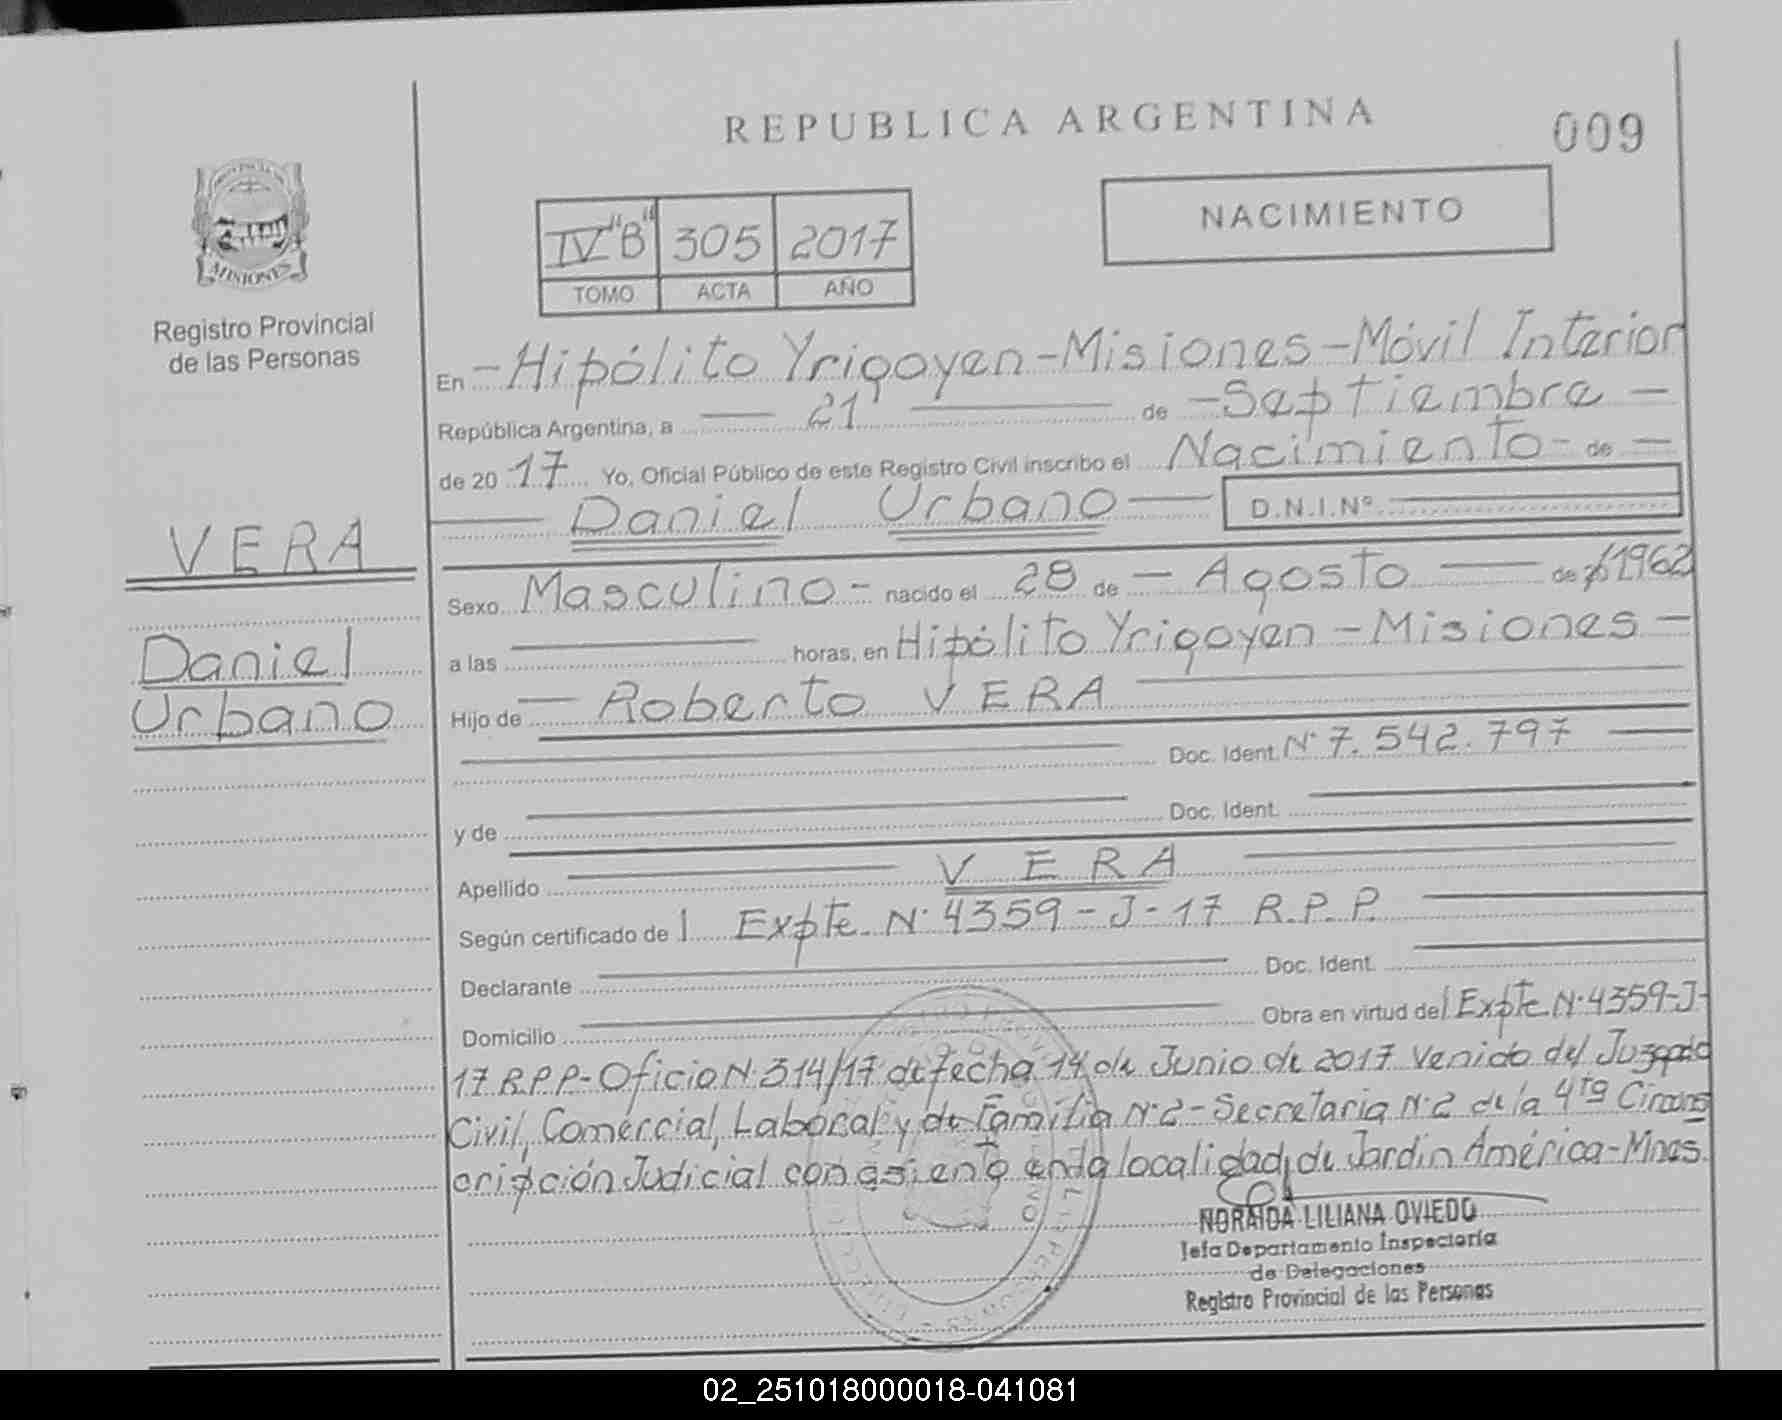 REPUBLICA ARGENTINA
009
MISIONES
Registro Provincial
de las Personas
IV "B" 305 2017
TOMO ACTA AÑO
NACIMIENTO
En - Hipólito Yrigoyen - Misiones - Móvil Interior
República Argentina, a 21 de - Septiembre -
de 20 17 Yo, Oficial Público de este Registro Civil inscribo el Nacimiento - de -
Daniel Urbano D.N.I.Nº
VERA
Daniel
Urbano
Sexo Masculino - nacido el 28 de - Agosto de 1962
a las horas, en Hipólito Yrigoyen - Misiones -
Hijo de Roberto VERA
Doc. Ident. N° 7.542.797
y de Doc. Ident.
Apellido VERA
Según certificado de l Expte. N° 4359 - J - 17 R.P.P.
Declarante Doc. Ident.
Domicilio Obra en virtud del Expte N° 4359-J-
17 R.P.P - Oficio N° 314/17 de fecha 14 de Junio de 2017 Venido del Juzgado
Civil, Comercial, Laboral y de Familia N° 2 - Secretaria N° 2 de la 4ta Circuns
cripción Judicial con asiento en la localidad de Jardín América - Mnes.
NORAIDA LILIANA OVIEDO
Jefa Departamento Inspectoría
de Delegaciones
Registro Provincial de las Personas
02_251018000018-041081